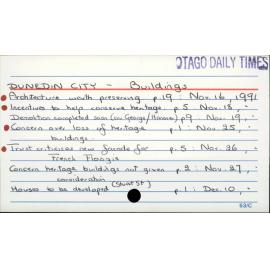 OTAGO DAILY TIMES
DUNEDIN CITY - Buildings
Architecture worth preserving p.19 : Nov. 16, 1991
Incentives to help conserve heritage p.5 : Nov. 18, "
Demolition completed soon (cnr George/Hanover) p.9 : Nov. 19, "
Concern over loss of heritage p.1 : Nov. 25, "
buildings.
Trust criticises new facade for p.5 : Nov. 26, "
French Maison
Concern heritage buildings not given p.2 : Nov. 27, "
consideration
Houses to be developed (Stuart St) p.1 : Dec. 10, "
53/C